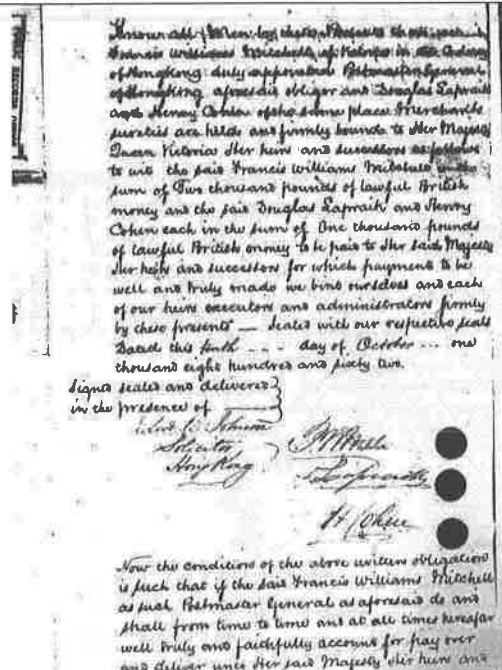 Know all Men by these Presents that we
Francis Williams Mitchell of Victoria in the Colony
of Hongkong duly appointed Postmaster General
of Hongkong aforesaid obligor and Douglas Lapraik
and Henry Cohen of the same place Merchants
sureties are held and firmly bound to Her Majesty
Queen Victoria Her heirs and successors as follows
to wit the said Francis Williams Mitchell in the
sum of Two thousand pounds of lawful British
money and the said Douglas Lapraik and Henry
Cohen each in the sum of One thousand pounds
of lawful British money to be paid to Her said Majesty
Her heirs and successors for which payment to be
well and truly made we bind ourselves and each
of our heirs executors and administrators firmly
by these presents — Sealed with our respective seals
Dated this tenth day of October one
thousand eight hundred and sixty two.
Signed sealed and delivered
in the presence of
Solicitor
Hong Kong
H Cohen
Now the condition of the above written obligation
is such that if the said Francis Williams Mitchell
as such Postmaster General as aforesaid do and
shall from time to time and at all times hereafter
well truly and faithfully account for pay over
and deliver unto Her said Majesty Her heirs and